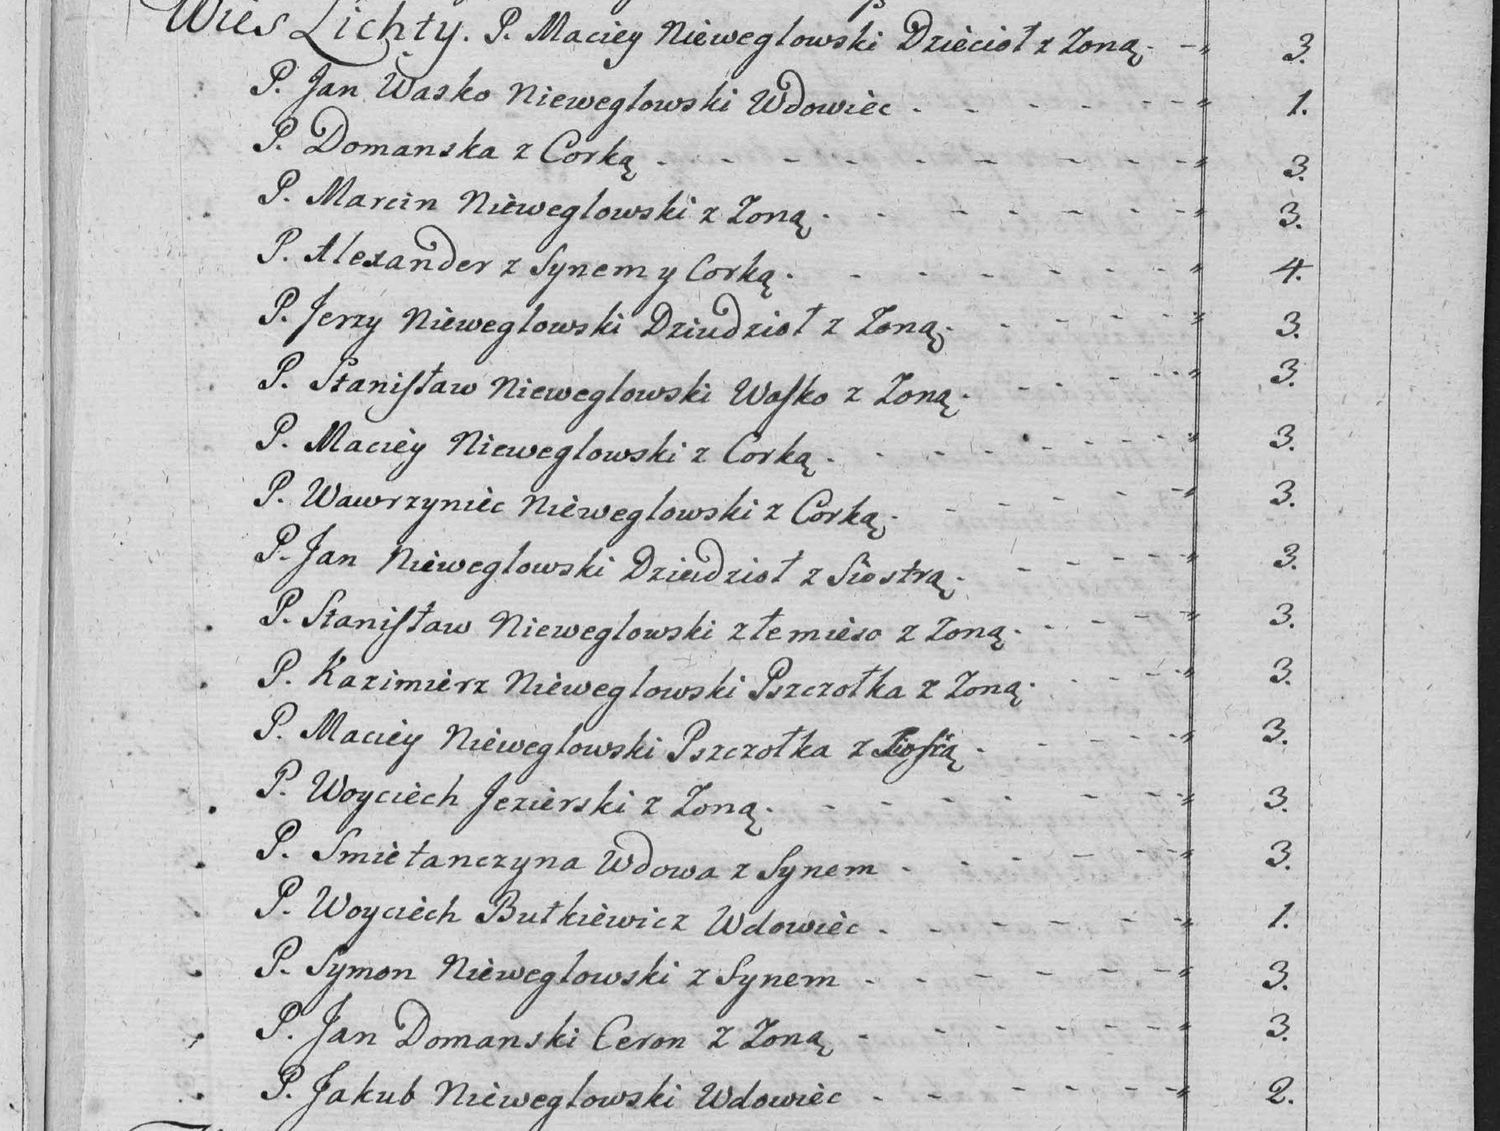 Wies Lichty. P. Maciey Nieweglowski Dziecioł z Zoną. - " 3.
P. Jan Wasko Nieweglowski Wdowiec . - - - - - " 1.
P. Domanska z Corką . - - - - - - - - " 3.
P. Marcin Nieweglowski z Zoną . - - - - - " 3.
P. Alexander z Synem y Corką . - - - - - - " 4.
P. Jerzy Nieweglowski Dziudzioł z Zoną . - - - - " 3.
P. Staniſław Nieweglowski Waſko z Zoną . - - - " 3.
P. Maciey Nieweglowski z Corką . - - - - - - " 3.
P. Wawrzyniec Nieweglowski z Corką . - - - - " 3.
P. Jan Nieweglowski Dziudzioł z Siostrą . - - - - " 3.
P. Staniſław Nieweglowski złe mieso z Zoną . - - - " 3.
P. Kazimierz Nieweglowski Pszczołka z Zoną . - - - " 3.
P. Maciey Nieweglowski Pszczołka z . - - - - " 3.
P. Woyciech Jezierski z Zoną . - - - - - - " 3.
P. Smietanczyna Wdowa z Synem . - - - - - " 3.
P. Woyciech Butkiewicz Wdowiec . - - - - - " 1.
P. Symon Nieweglowski z Synem - - - - - - " 3.
P. Jan Domanski Ceron z Zoną - - - - - - " 3.
P. Jakub Nieweglowski Wdowiec . - - - - - " 2.